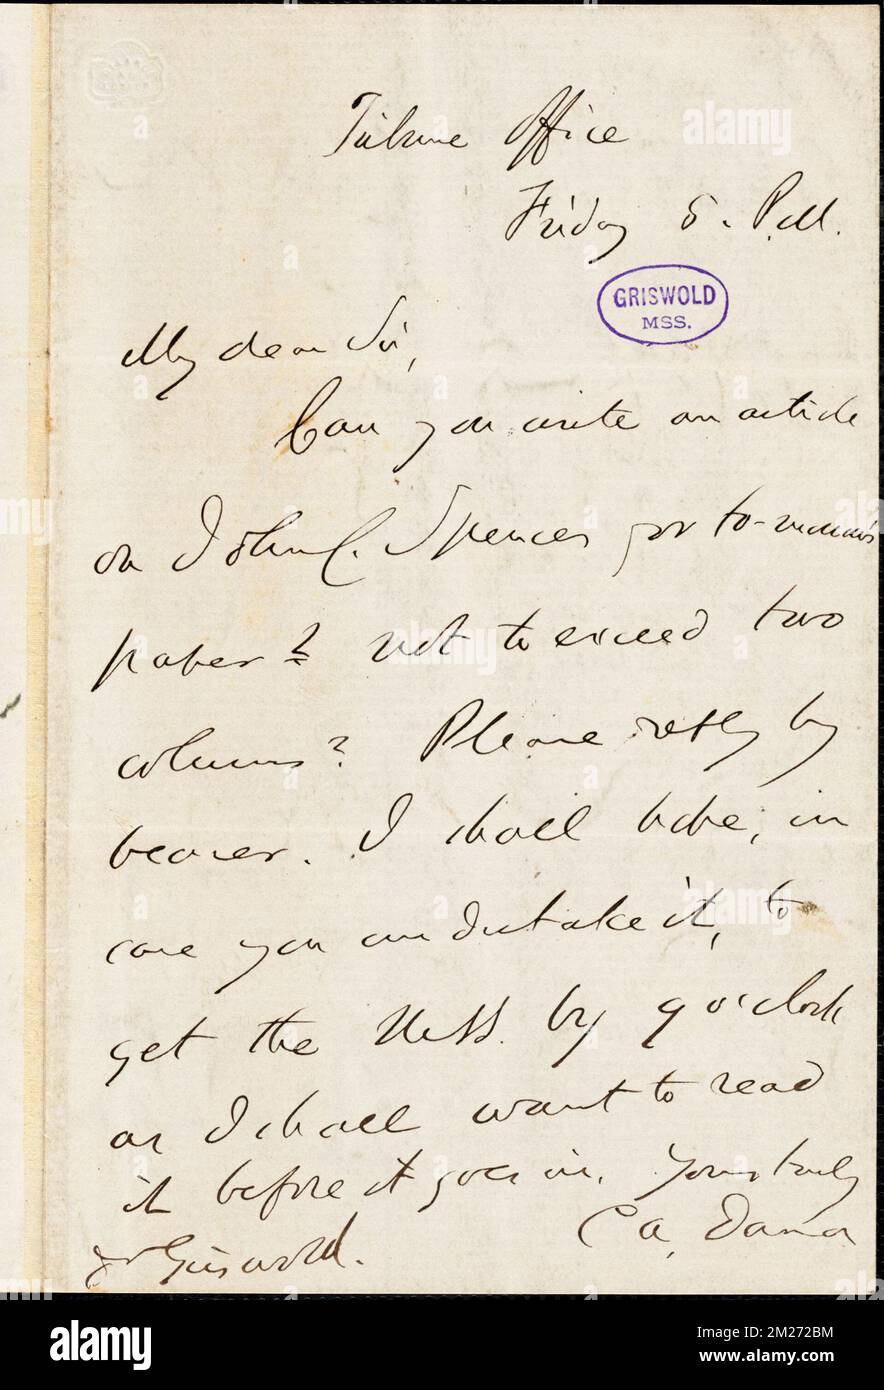 Tribune Office
Friday 5. P.M.
GRISWOLD
MSS.
My dear Sir,
Can you write an article
on John C. Spencer for to-morrow's
paper? not to exceed two
columns? Please reply by
bearer. I shall hope, in
case you undertake it, to
get the MSS. by 9 o'clock
as I shall want to read
it before it goes in. Yours truly
C A. Dana
Dr Griswold.
alamy
alamy
alamy
Image ID: 2M272BM
www.alamy.com